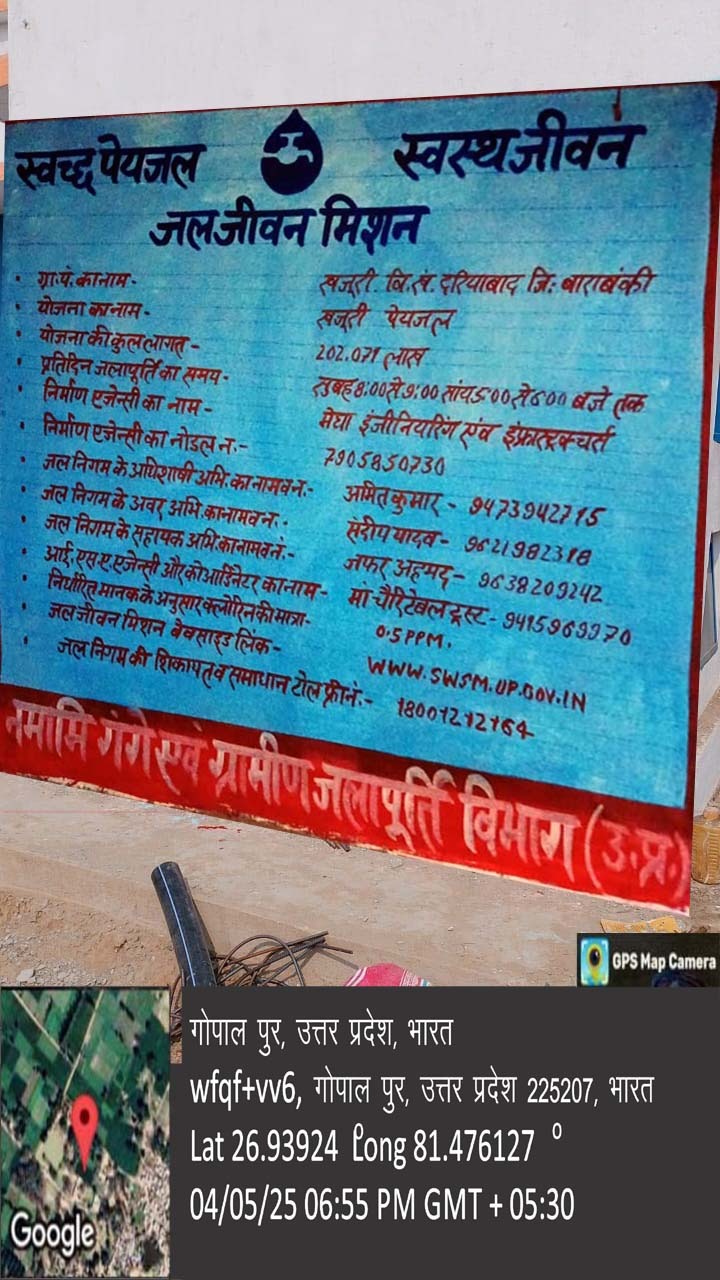 स्वच्छ पेयजल स्वस्थ जीवन
जल जीवन मिशन
• ग्रा.पं. का नाम - खजूरी वि.खं. दरियाबाद जि: बाराबंकी
• योजना का नाम - खजूरी पेयजल
• योजना की कुल लागत - 202.071 लाख
• प्रतिदिन जलापूर्ति का समय - सुबह 8:00 से 9:00 सांय 5:00 से 6:00 बजे तक
• निर्माण एजेन्सी का नाम - मेघा इंजीनियरिंग एंव इंफ्रास्ट्रक्चर्स
• निर्माण एजेन्सी का नोडल न.:- 7905850730
• जल निगम के अधिशाषी अभि. का नाम व न.:- अमित कुमार - 9473942715
• जल निगम के अवर अभि. का नाम व न.. संदीप यादव - 9621982318
• जल निगम के सहायक अभि. का नाम व नं.- जफर अहमद - 9638209242
• आई.एस.ए. एजेन्सी और कोआर्डिनेटर का नाम - मां चैरिटेबल ट्रस्ट - 9415969970
• निर्धारित मानक के अनुसार क्लोरिन की मात्रा - 0.5 PPM.
• जल जीवन मिशन बेवसाइड लिंक - WWW.SWSM.UP.GOV.IN
• जल निगम की शिकायत व समाधान टोल फ्री नं.:- 18001212164
नमामि गंगे एवं ग्रामीण जलापूर्ति विभाग (उ.प्र.)
GPS Map Camera
गोपाल पुर, उत्तर प्रदेश, भारत
wfqf+vv6, गोपाल पुर, उत्तर प्रदेश 225207, भारत
Lat 26.93924 Long 81.476127 °
04/05/25 06:55 PM GMT + 05:30
Google